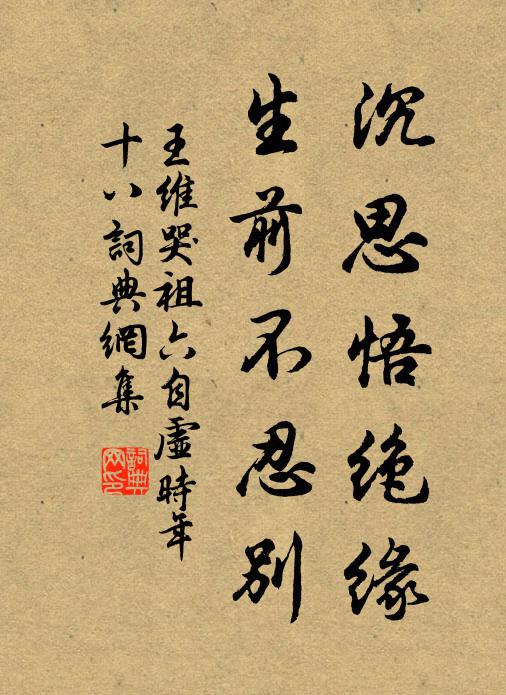 沉思悟絶緣
生前不忍別
王維哭祖六自虛時年
十八詞典網集
詞典
网印